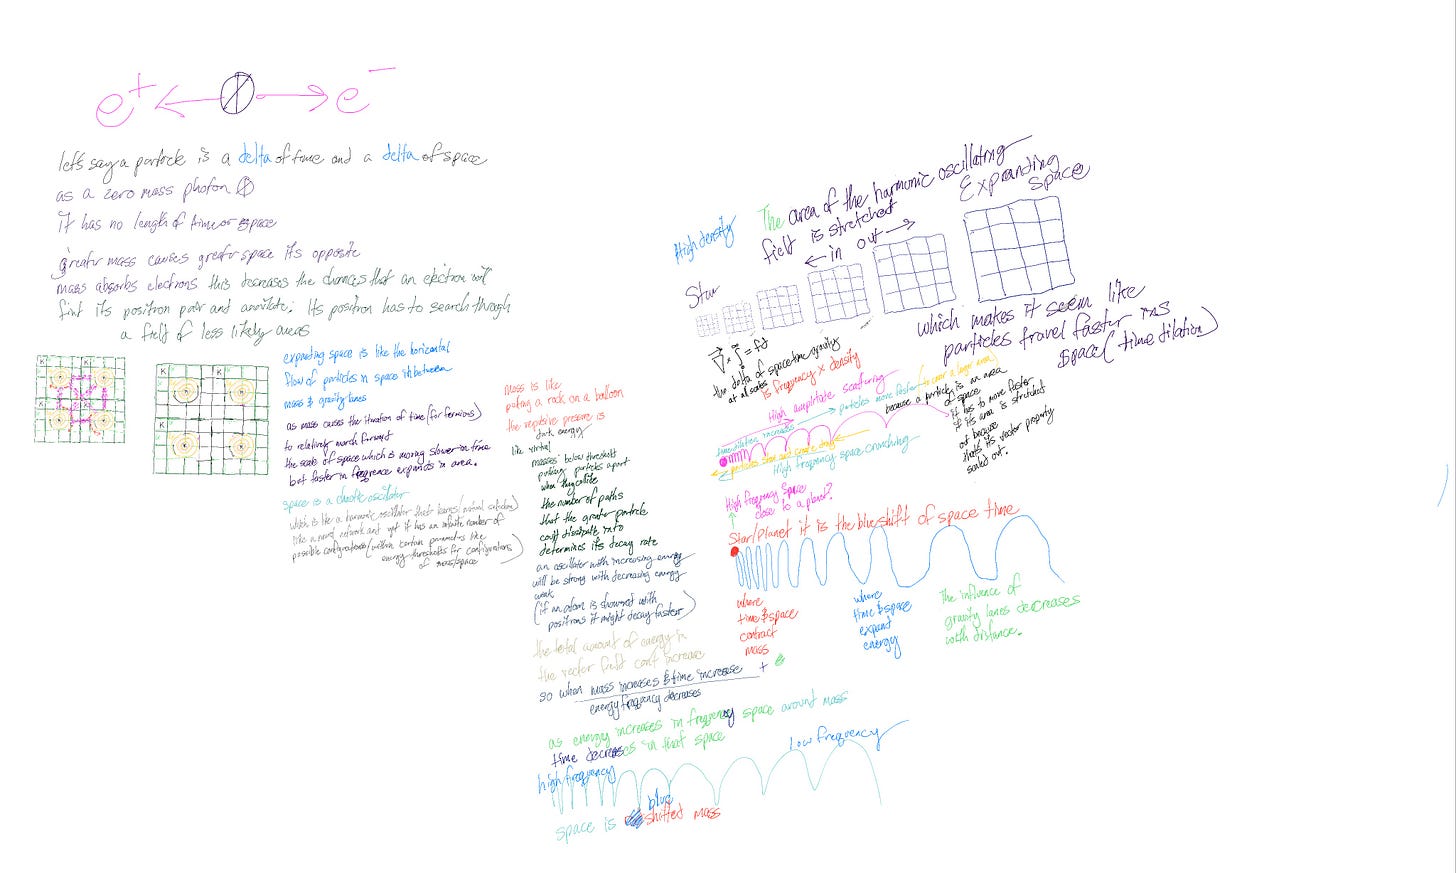 e+ ← ∅ → e−
let's say a particle is a delta of time and a delta of space
as a zero mass photon ∅
it has no length of time or space
greater mass causes greater space its opposite
mass absorbs electrons this decreases the chances that an electron will
find its positron pair and anvilate. Its positron has to search through
a field of less likely areas
K K
K K
K K
K K
expanding space is like the horizontal
flow of particles in space in between
mass & gravity lanes
as mass causes the iteration of time (for fermions)
to relatively march forward
the scale of space which is moving slower in time
but faster in frequence expands in area.
space is a chaotic oscillator
which is like a harmonic oscillator that learns: natural selection
like a neural network and yet it has an infinite number of
possible configurations (within certain parameters like
energy thresholds for configurations
of mass/space)
mass is like
puting a rock on a balloon
the repulsive pressure is
dark energy
like virtual
masses below threshold
pushing particles apart
when they collide
the number of paths
that the greater particle
could dissipate into
determines its decay rate
an oscillator with increasing energy
will be strong with decreasing energy
weak
(if an atom is showered with
positrons it might decay faster)
the total amount of energy in
the vector field cant increase
so when mass increases & time increase + e
energy frequency decreases
as energy increases in frequency space around mass
time decreases in that space
high frequency
low frequency
space is blue shifted mass
High density
The area of the harmonic oscillating
field is stretched
← in out →
Expanding
space
Star
which makes it seem like
particles travel faster in
space (time dilation)
the delta of spacetime gravity
at all scales is frequency x density
High amplitute scattering
time dilation increases → particles move faster to cover a larger area
because a particle is an area
of space
it has to move faster
if its area is stretched
out because
that's its vector property
scaled out.
← particles slow and create drag
High frequency space crunching
High frequency space
close to a planet?
Star/Planet it is the blueshift of space time
where
time & space
contract
mass
where
time & space
expand
energy
The influence of
gravity lanes decreases
with distance.